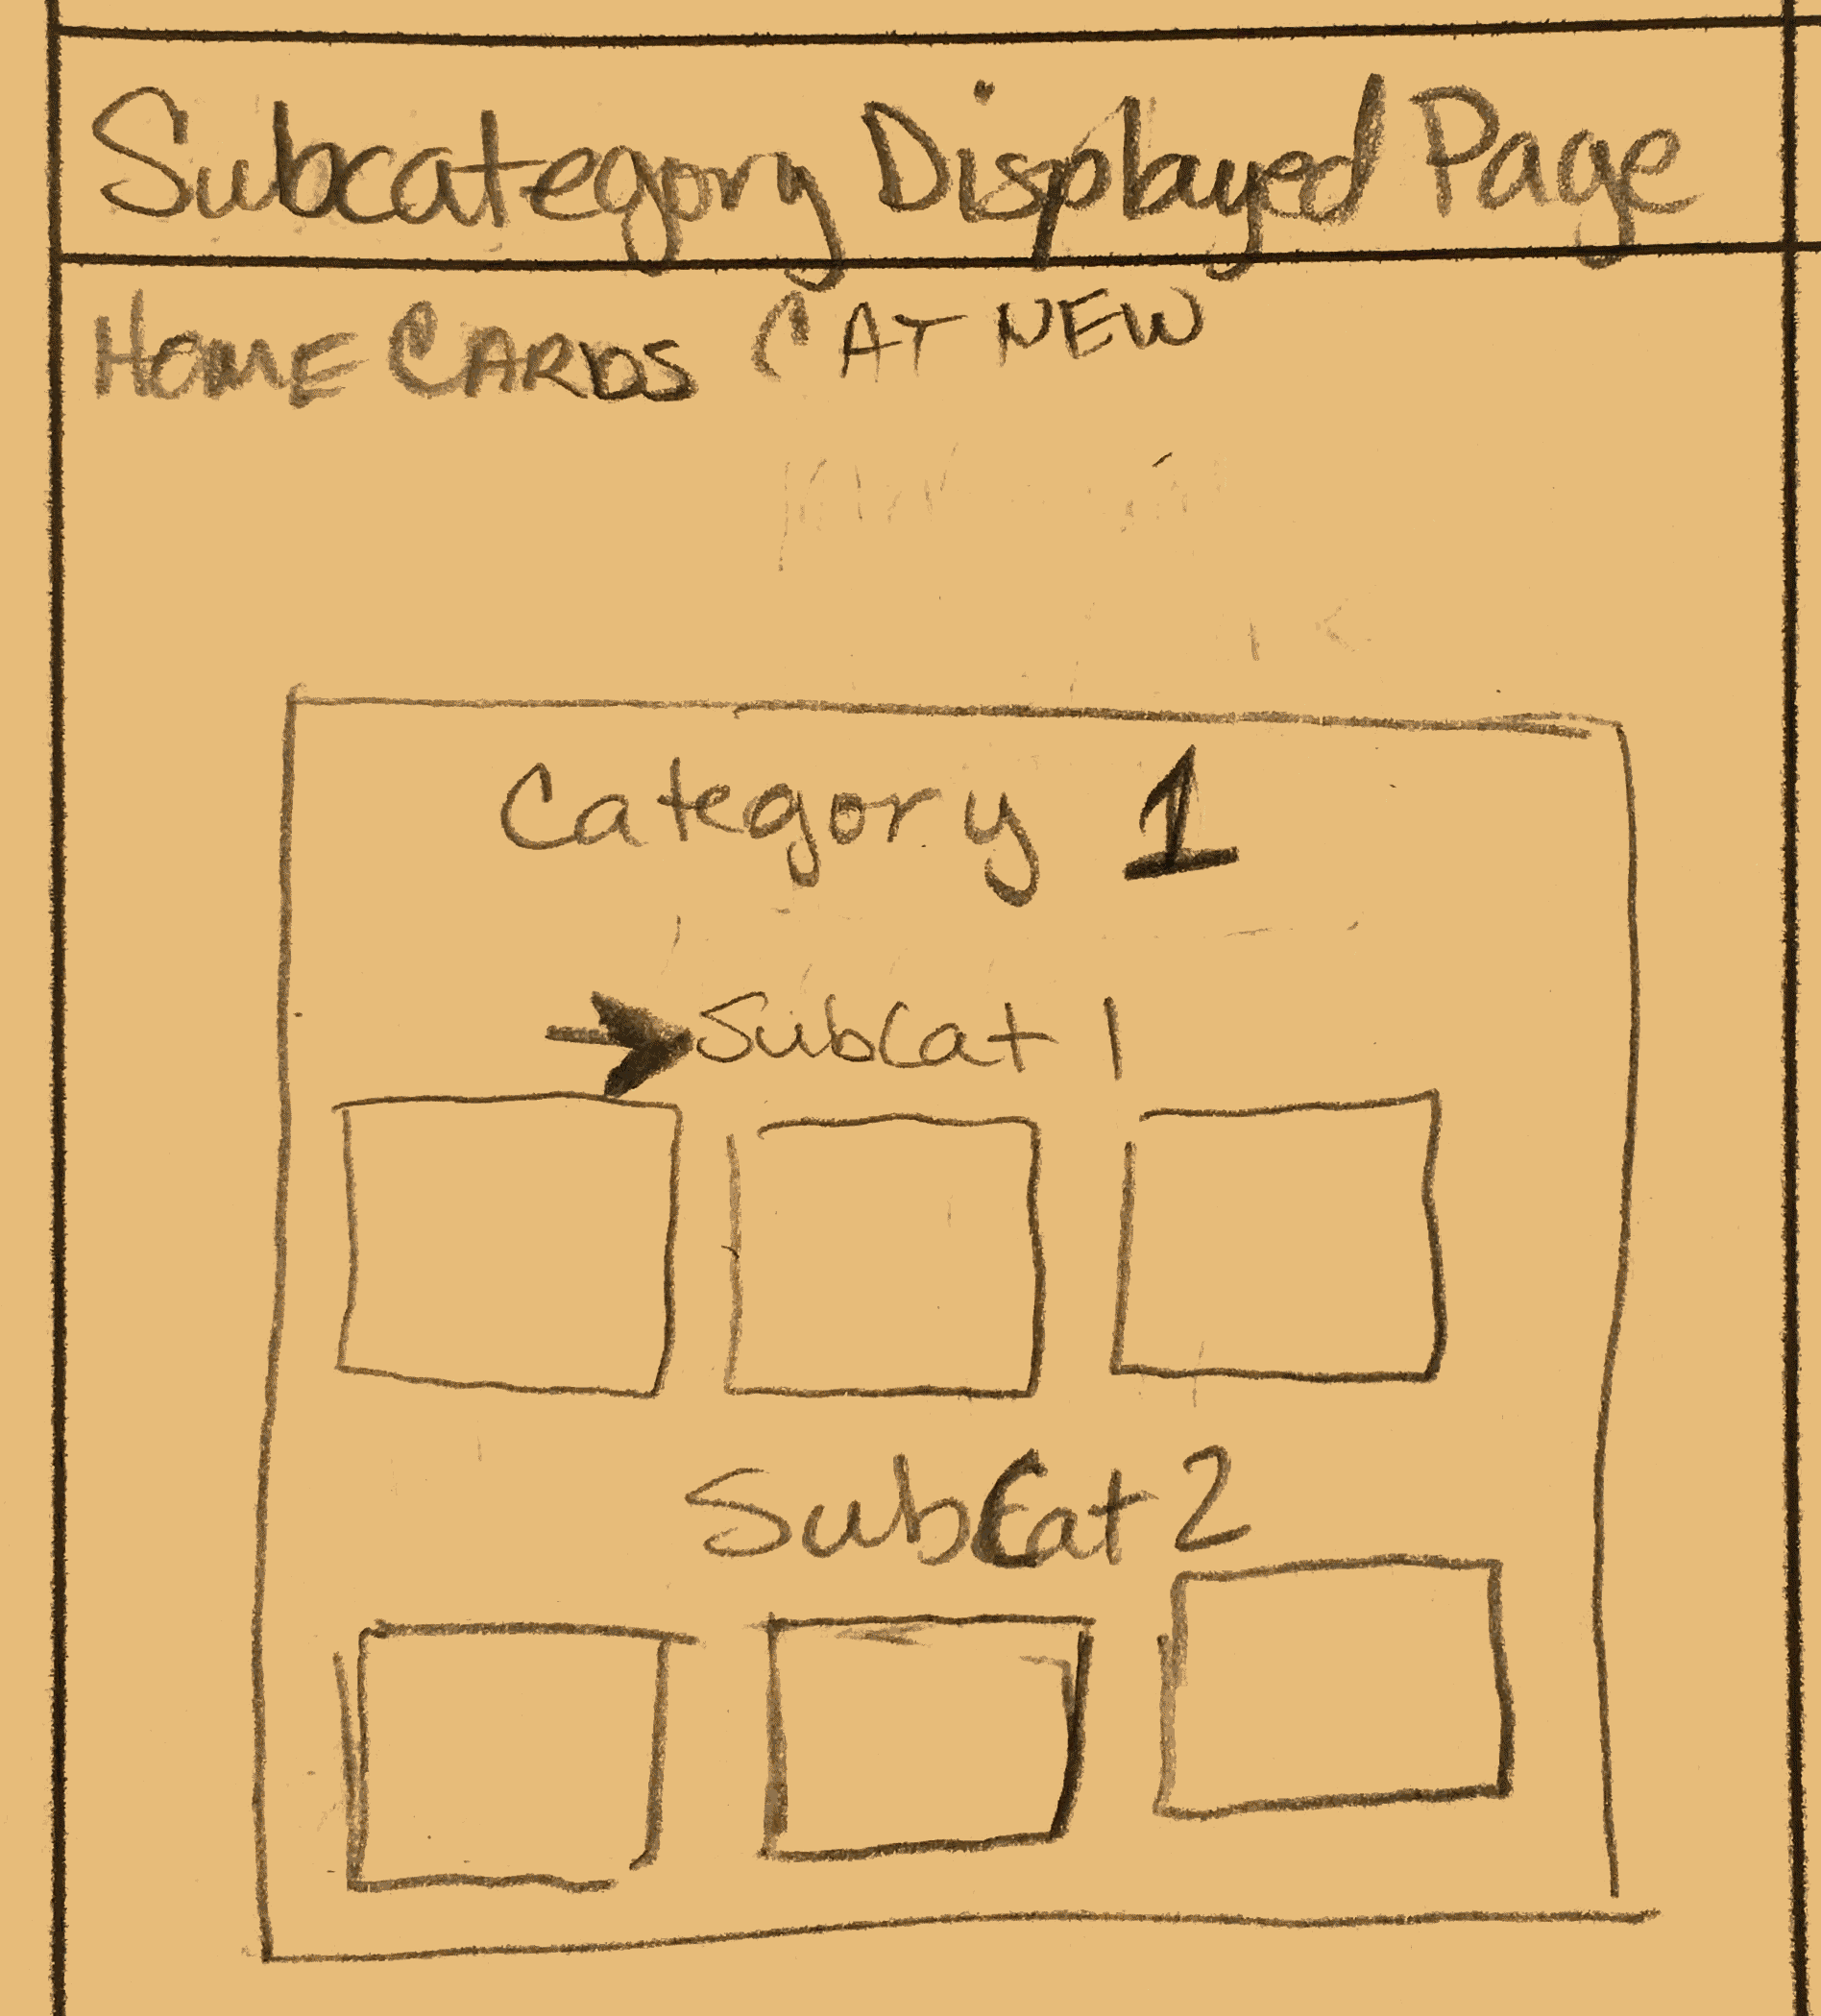 Subcategory Displayed Page
HOME CARDS CAT NEW
Category 1
SubCat 1
SubCat 2